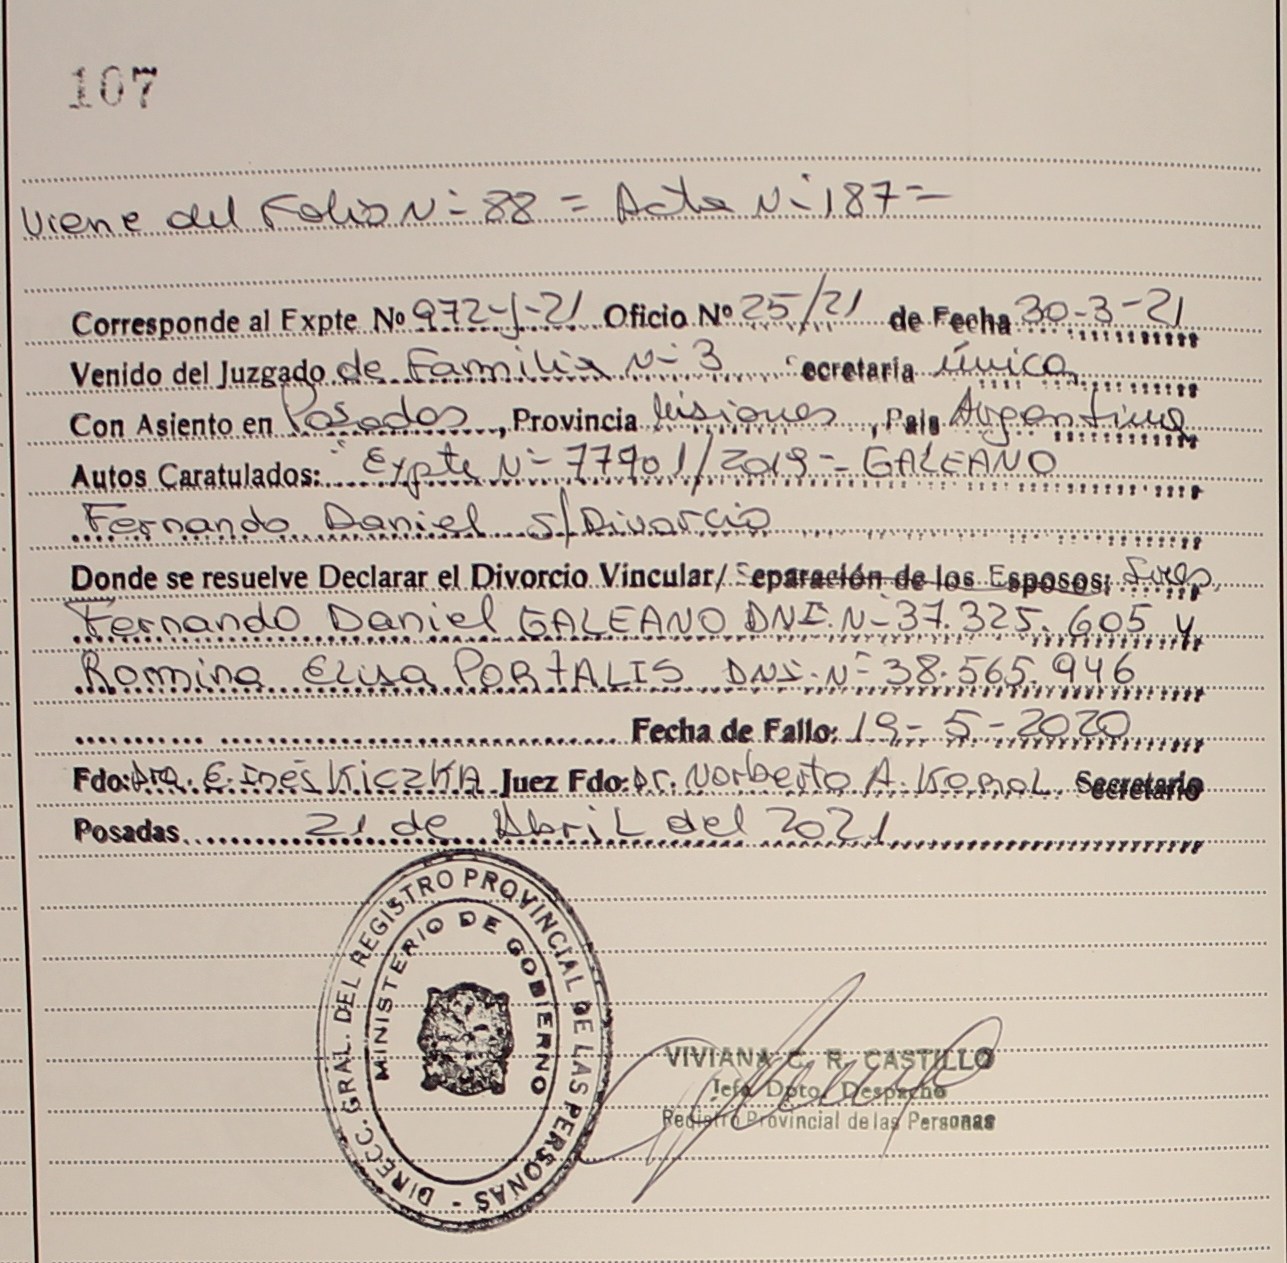 107
Viene del Folio N- 88 = Acta N- 187 =
Corresponde al Expte Nº 972-J-21 Oficio Nº 25/21 de Fecha 30-3-21
Venido del Juzgado de Familia N- 3 ecretaria única
Con Asiento en Posadas, Provincia Misiones, Pais Argentina
Autos Caratulados: "Expte N- 77901/2019 - GALEANO
Fernando Daniel s/Divorcio
Donde se resuelve Declarar el Divorcio Vincular/ Separación de los Esposos: Sres.
Fernando Daniel GALEANO DNI. N- 37.325.605 y
Romina Elisa PORTALIS DNI. N- 38.565.946
Fecha de Fallo: 19-5-2020
Fdo: Dra. E. Inés KiczKA Juez Fdo: Dr. Norberto A. Secretario
Posadas 21 de Abril del 2021
DIRECC. GRAL. DEL REGISTRO PROVINCIAL DE LAS PERSONAS -
MINISTERIO DE GOBIERNO
VIVIANA C. R. CASTILLO
Jefa Dpto. Despacho
Registro Provincial de las Personas